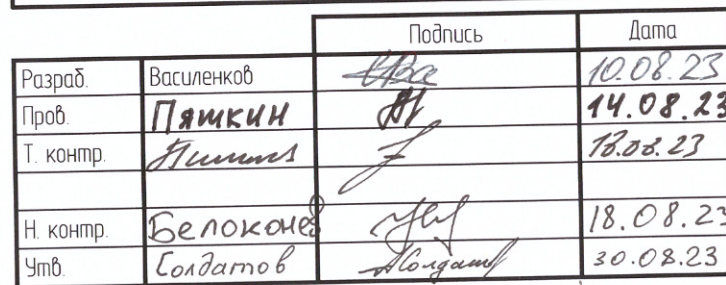 Подпись Дата
Разраб. Василенков 10.08.23
Пров. Пяшкин 14.08.23
Т. контр.
Н. контр. Белоконев 18.08.23
Утв. Солдатов 30.08.23